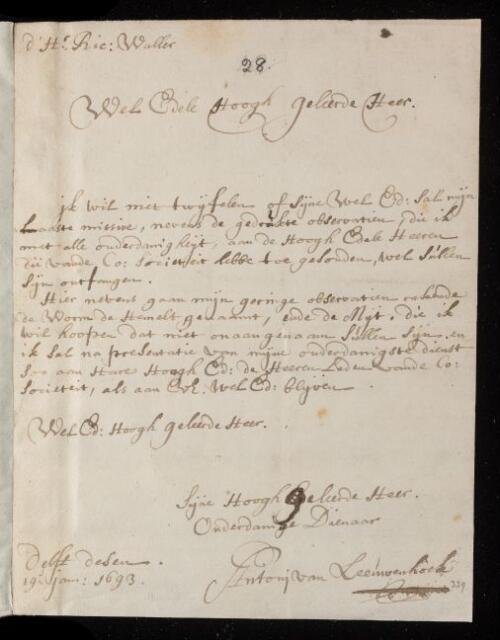 d'Hr. Ric: Waller
28.
Wel Edele Hoogh geleerde Heer.
ik wil niet twijfelen of sijne Wel Ed: sal mijn
Laaste missive, nevens de gedrukte observatien, die ik
met alle onderdanigheijt, aan de Hoogh Edele Heeren
die vande Co: Societeit hebbe toe gesonden, wel sullen
sijn ontfangen.
Hier nevens gaan mijn geringe observatien
de Worm de Hemelt genaamt, ende de Mijt, die ik
wil hoopen dat niet onaangenaam sullen sijn. en
ik sal na presentatie van mijne onderdanigste dienst
soo aan Hare Hoogh Ed: de Heeren Leden vande Co:
Societeit, als aan Wel Ed: blijven.
Wel Ed: Hoogh geleerde Heer.
Sijne Hoogh Geleerde Heer.
Onderdanige Dienaar
Delft desen
19e. jan: 1693.
Antonj van Leeuwenhoek
229